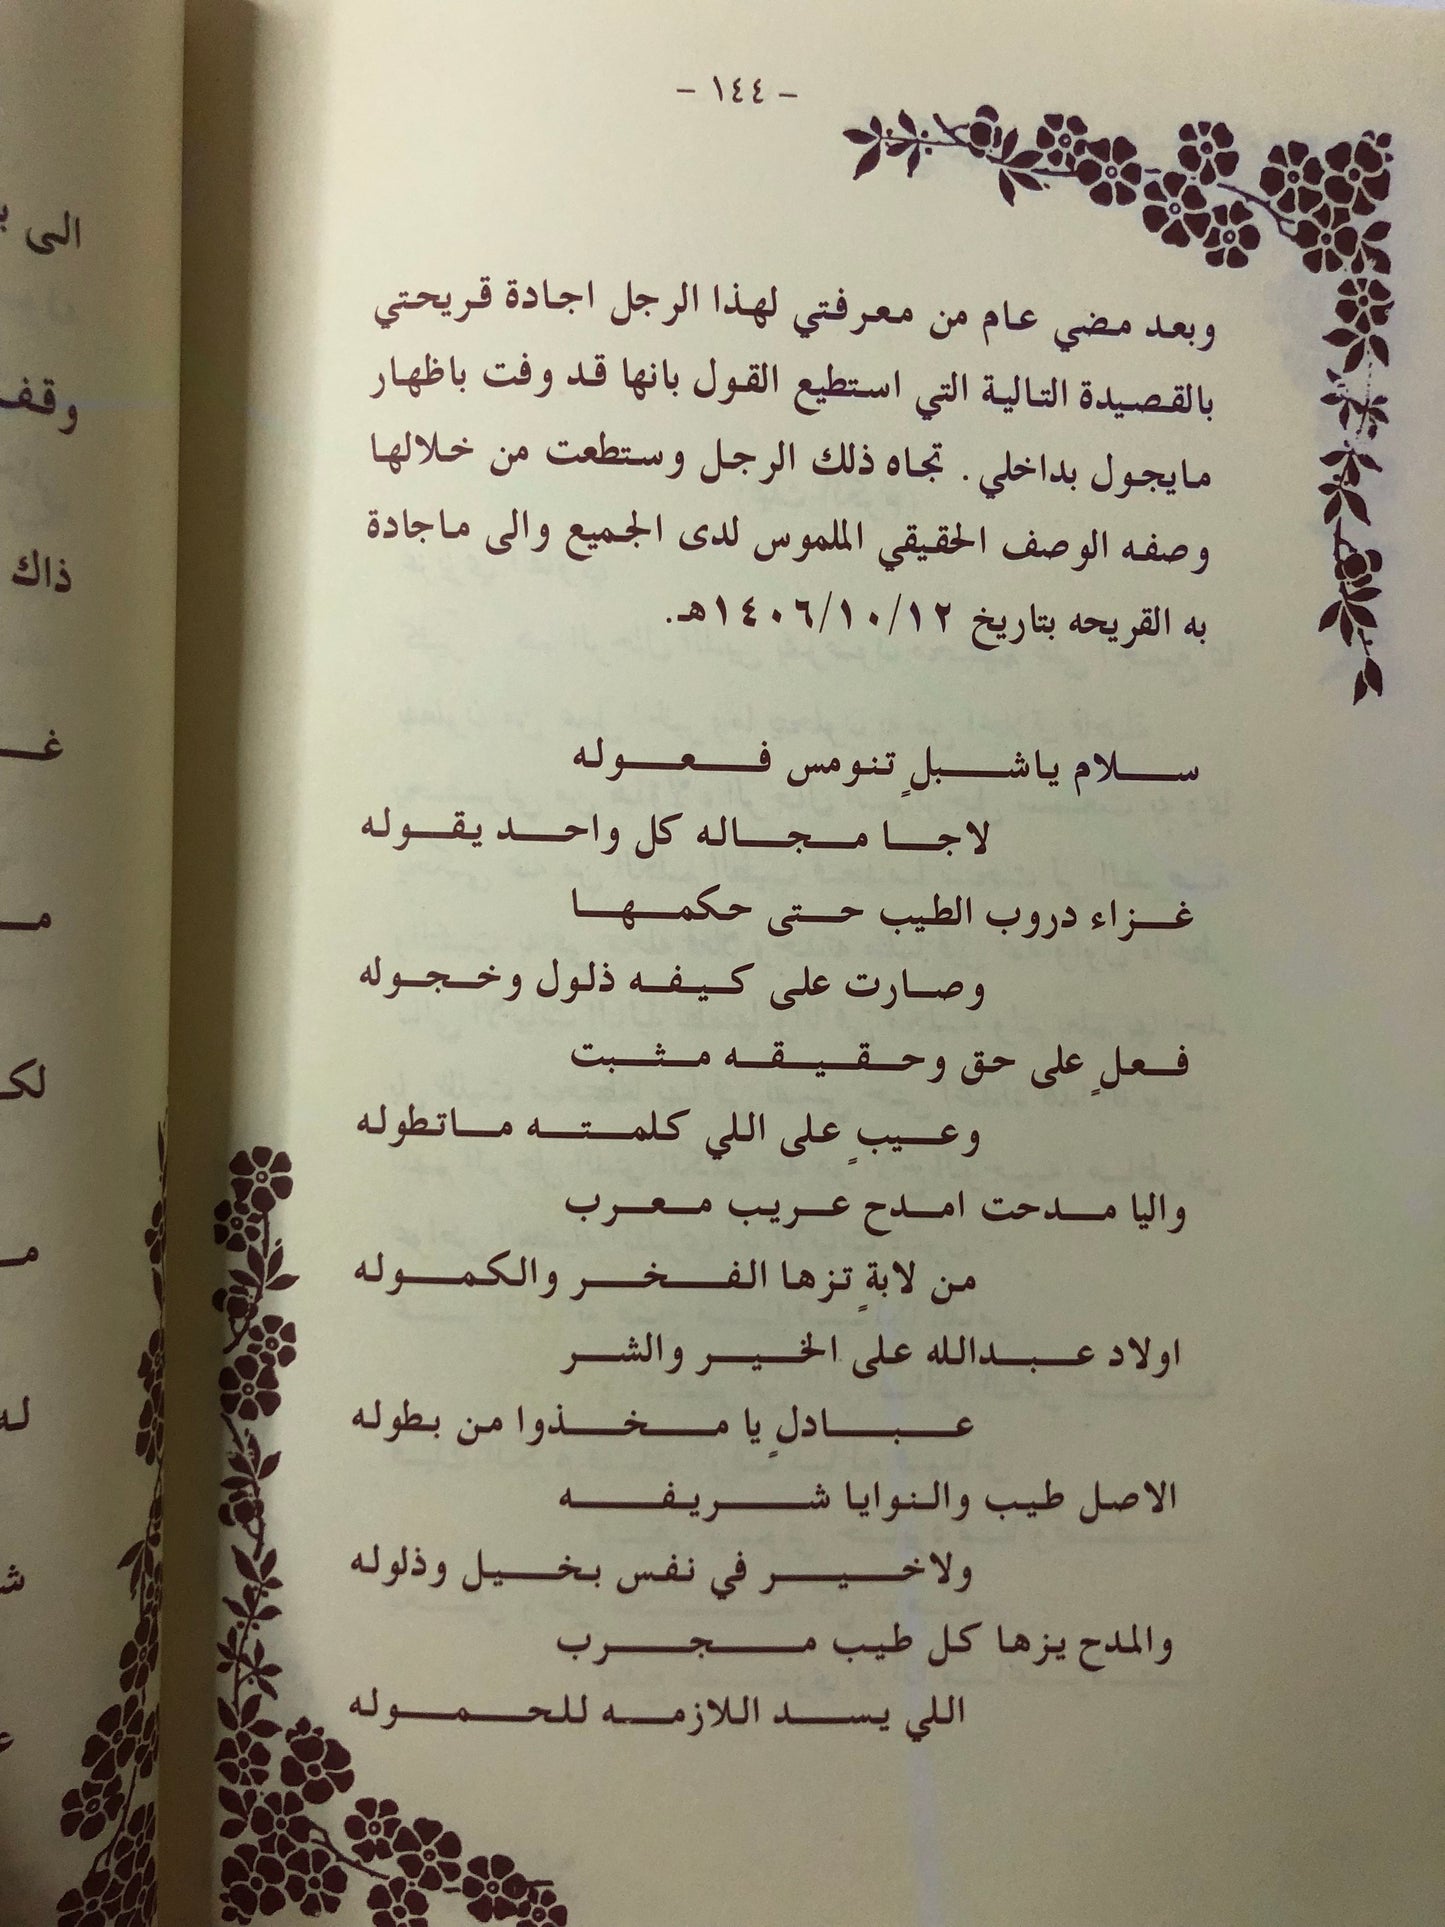 - ١٤٤ -
وبعد مضي عام من معرفتي لهذا الرجل اجادة قريحتي
بالقصيدة التالية التي استطيع القول بانها قد وفت باظهار
مايجول بداخلي. تجاه ذلك الرجل وستطعت من خلالها
وصفه الوصف الحقيقي الملموس لدى الجميع والى ماجادة
به القريحه بتاريخ ١٤٠٦/١٠/١٢هـ.
سلام ياشبلٍ تنومس فعوله
لاجا مجاله كل واحد يقوله
غزاء دروب الطيب حتى حكمها
وصارت على كيفه ذلول وخجوله
فعلٍ على حق وحقيقه مثبت
وعيبٍ على اللي كلمته ماتطوله
واليا مدحت امدح عريب معرب
من لابةٍ تزها الفخر والكموله
اولاد عبدالله على الخير والشر
عبادلٍ يا مخذوا من بطوله
الاصل طيب والنوايا شريفه
ولاخير في نفس بخيل وذلوله
والمدح يزها كل طيب مجرب
اللي يسد اللازمه للحموله
الى
وقف
ذاك
غـ
مـ
لكـ
مـ
لـه
شـ